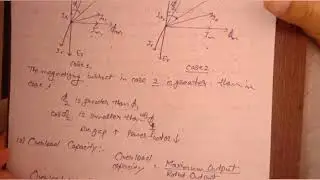 Case 1
Case 2
The magnetizing current in case 2 is greater than in
case 1
φ2 is greater than φ1
cosφ2 is smaller than cosφ1
Air gap ↑ Power factor ↓
(2) Overload Capacity:-
Overload capacity = Maximum Output
Rated Output